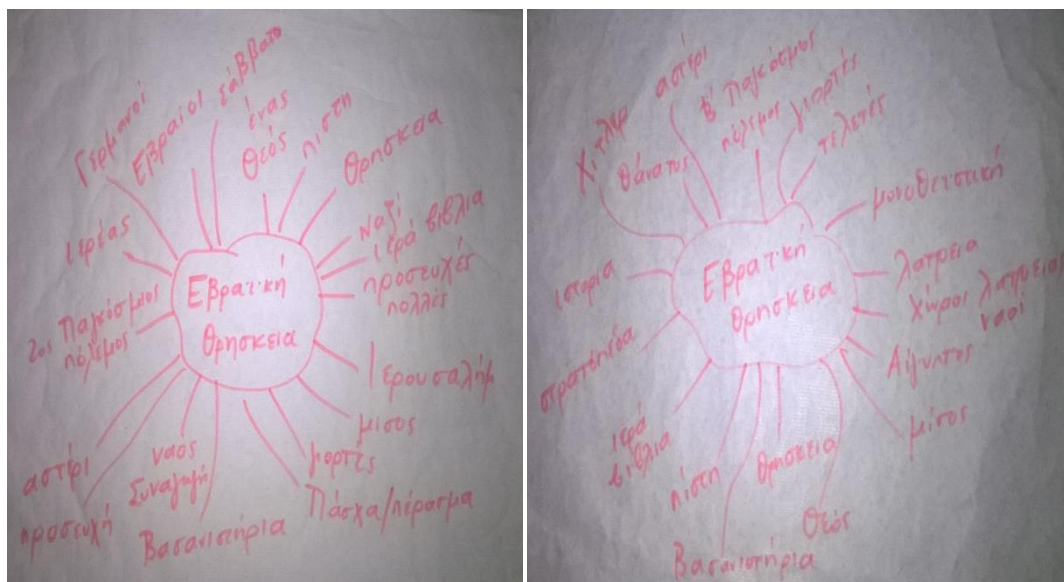 Εβραϊκή
θρησκεία
Γερμανοί
Εβραίοι
σάββατο
ένας
θεός
πιστη
Θρησκεια
ναζί
ιερά βιβλια
προσευχές
πολλές
Ιερουσαλήμ
μισος
γιορτές
Πάσχα/πέρασμα
Βασανιστήρια
ναος
Συναγωγή
προσευχή
αστέρι
2ος Παγκόσμιος
πόλεμος
ιερέας
Εβραϊκή
θρησκεια
Χιτλερ
αστέρι
θάνατος
Β' Παγκόσμιος
πόλεμος
γιορτές
τελετές
μονοθεϊστική
λατρεια
Χώροι λατρειας
ναοί
Αίγυπτος
μίσος
Θεός
θρησκεια
Βασανιστήρια
πίστη
ιερά
βιβλια
στρατόπεδα
ιστορια